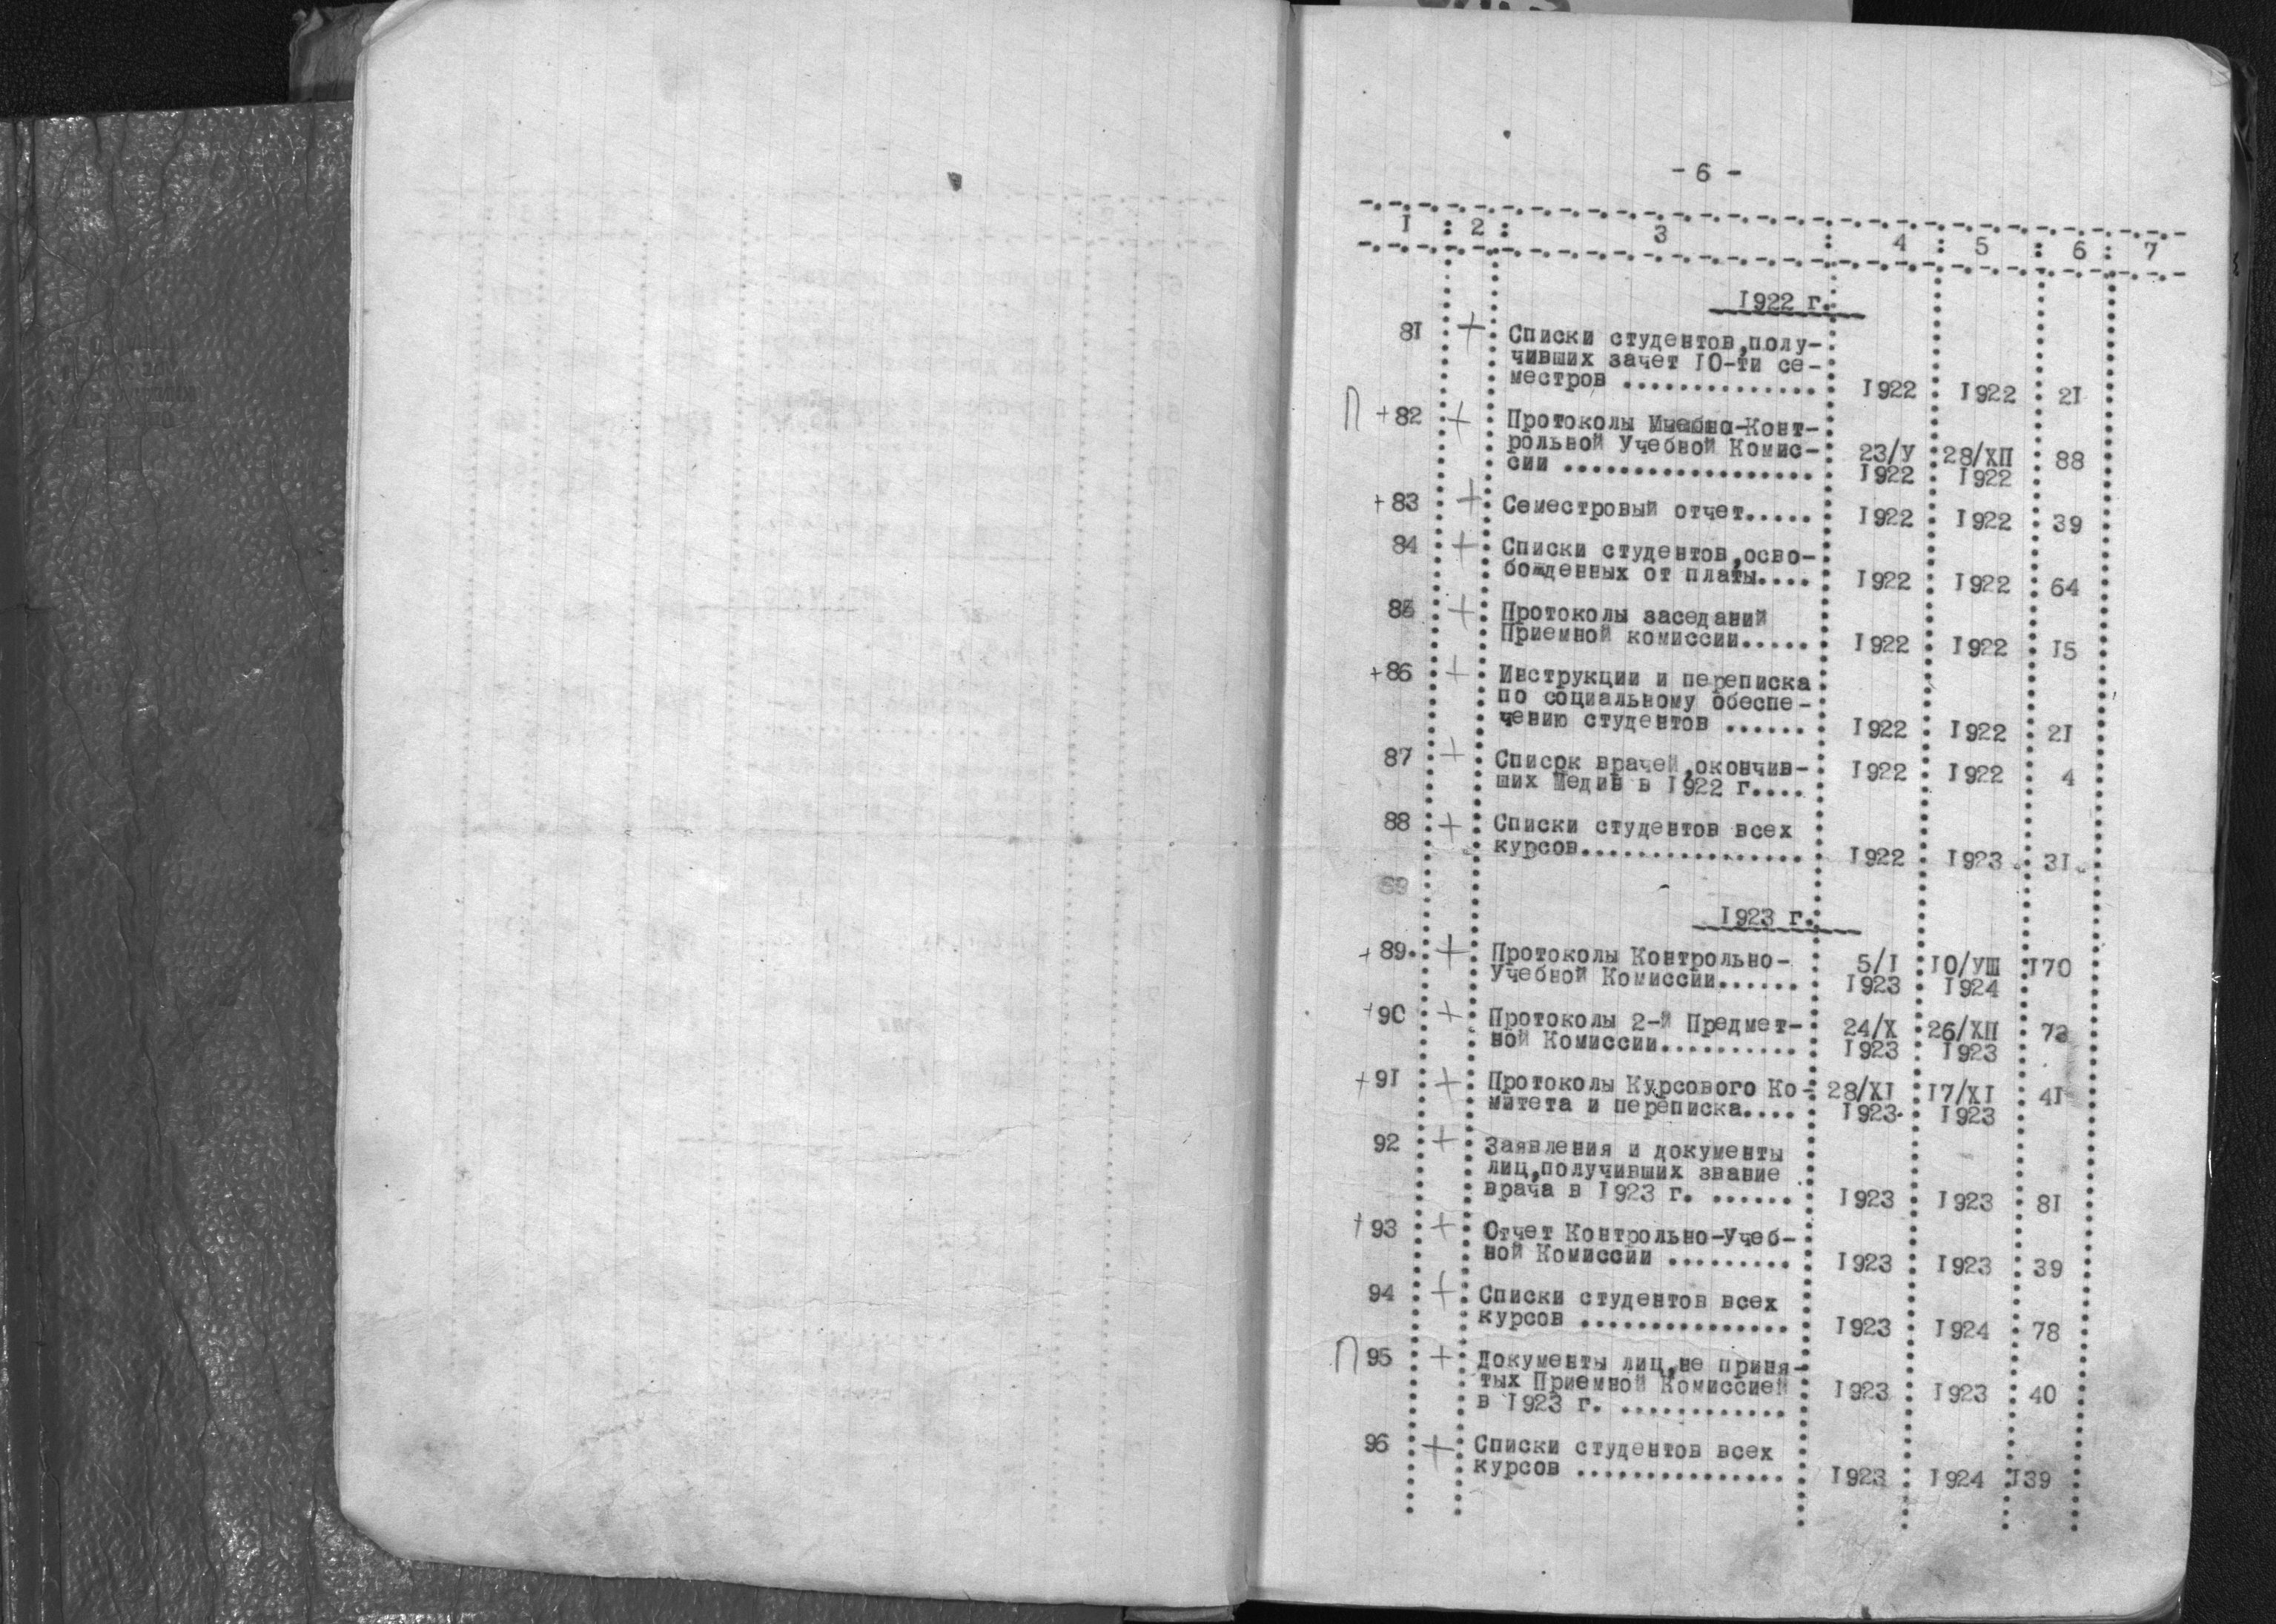 - 6 -
I : 2 : 3 : 4 : 5 : 6 : 7
1922 г.
81 + Списки студентов,полу-
чивших зачет 10-ти се-
местров .............. 1922 1922 21
П +82 + Протоколы Конт-
рольной Учебной Комис- 23/У 28/ХП 88
сии .................. 1922 1922
+83 + Семестровый отчет..... 1922 1922 39
84 + Списки студентов,осво-
божденных от платы.... 1922 1922 64
85 + Протоколы заседаний
Приемной комиссии..... 1922 1922 15
+86 + Инструкции и переписка
по социальному обеспе-
чению студентов ...... 1922 1922 21
87 + Список врачей,окончив- 1922 1922 4
ших Медин в 1922 г....
88 + Списки студентов всех
курсов................ 1922 1923 31
89
1923 г.
+89. + Протоколы Контрольно- 5/I 10/УШ 170
Учебной Комиссии...... 1923 1924
+90 + Протоколы 2-й Предмет- 24/Х 26/ХП 73
ной Комиссии.......... 1923 1923
+91 + Протоколы Курсового Ко- 28/XI 17/XI 41
митета и переписка.... 1923 1923
92 + Заявления и документы
лиц,получивших звание
врача в 1923 г. ...... 1923 1923 81
+93 + Отчет Контрольно-Учеб-
ной Комиссии ......... 1923 1923 39
94 + Списки студентов всех
курсов ............... 1923 1924 78
П 95 + Документы лиц,не приня-
тых Приемной Комиссией 1923 1923 40
в 1923 г. ............
96 + Списки студентов всех
курсов ............... 1923 1924 139